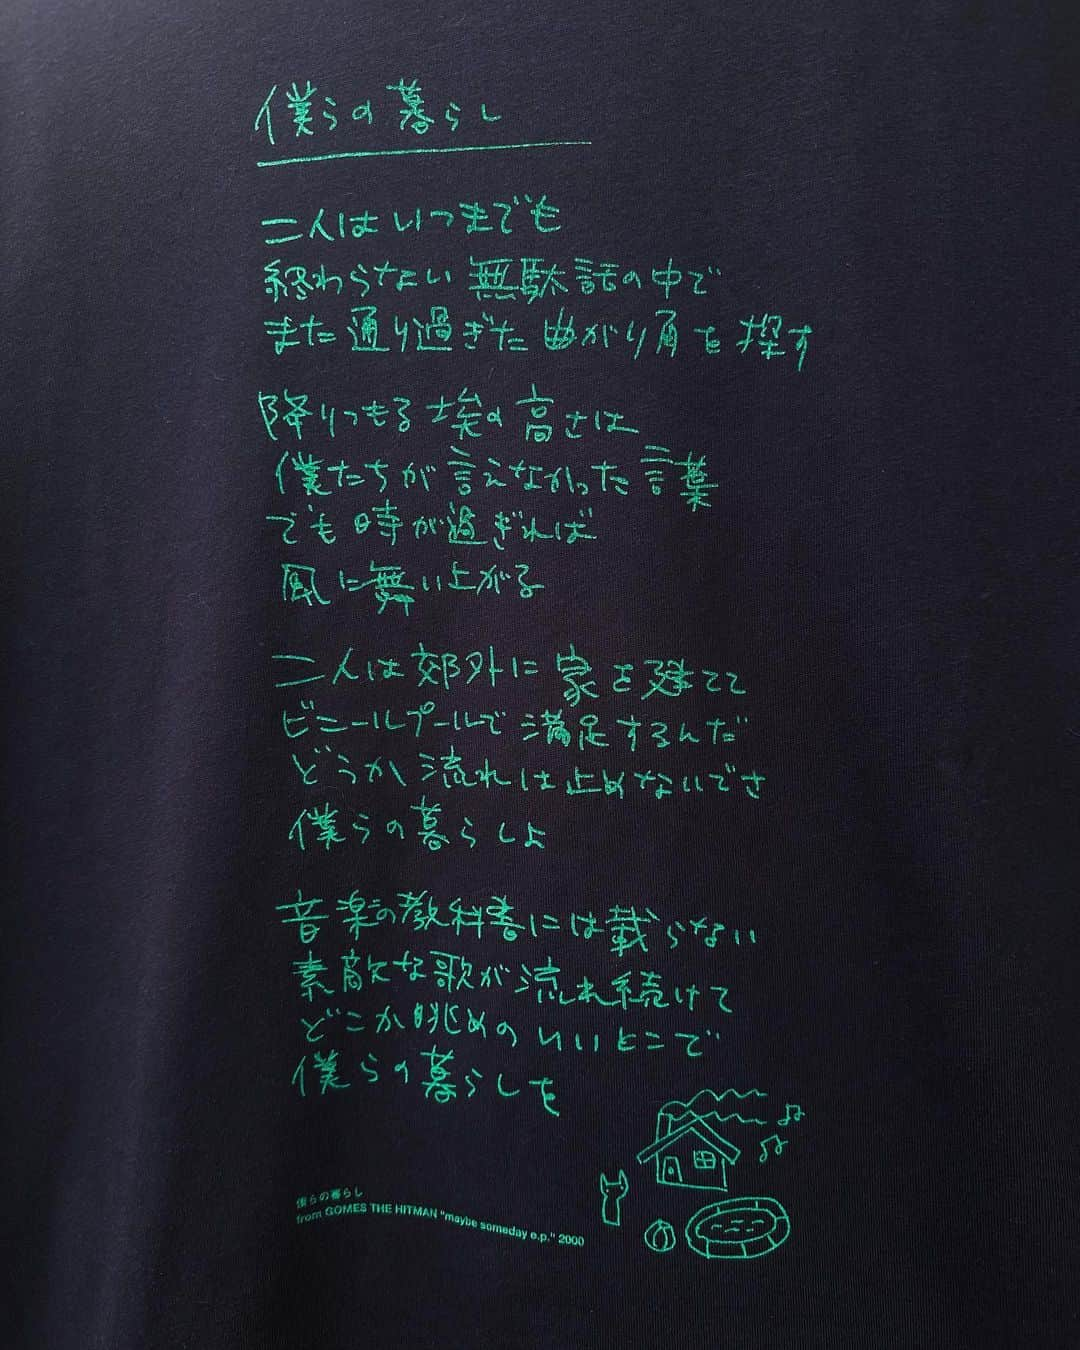 僕らの暮らし
二人はいつまでも
終わらない無駄話の中で
また通り過ぎた曲がり角を探す
降りつもる埃の高さは
僕たちが言えなかった言葉
でも時が過ぎれば
風に舞い上がる
二人は郊外に家を建てて
ビニールプールで満足するんだ
どうか流れは止めないでさ
僕らの暮らしよ
音楽の教科書には載らない
素敵な歌が流れ続けて
どこか眺めのいいとこで
僕らの暮らしを
僕らの暮らし
from GOMES THE HITMAN "maybe someday e.p." 2000